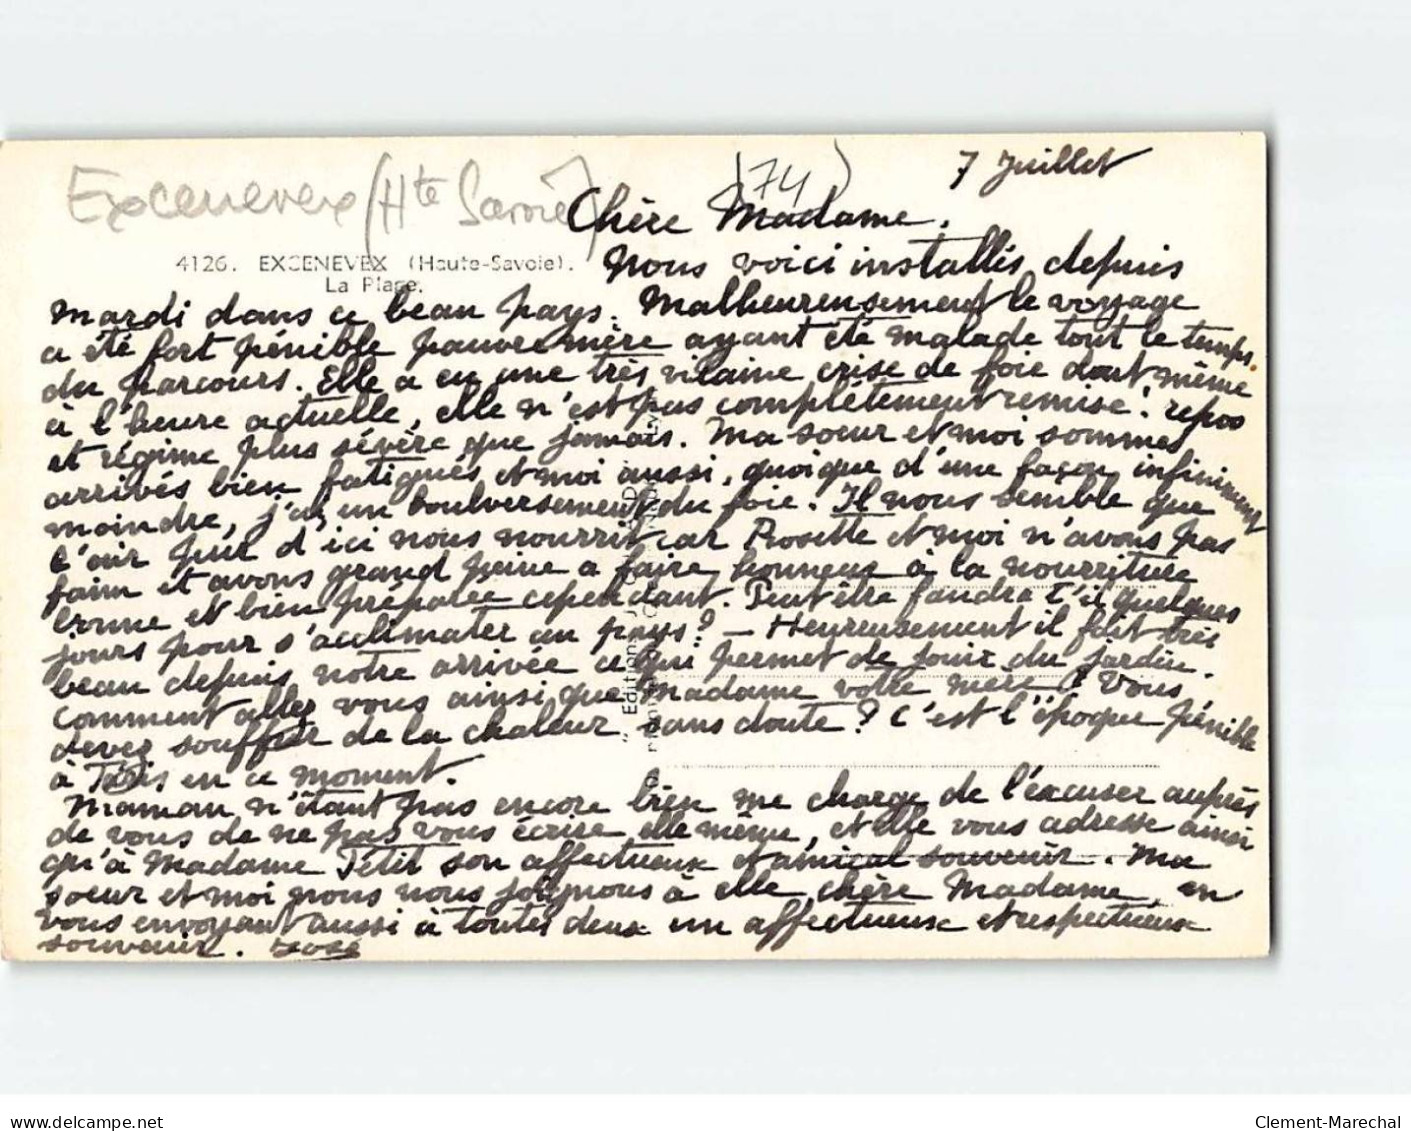 7 Juillet
Excenevex (Hte Savoie) (74)
Chère Madame,
4126. EXCENEVEX (Haute-Savoie).
La Plage.
Nous voici installés depuis
mardi dans ce beau pays. Malheureusement le voyage
a été fort pénible pauvre mère ayant été malade tout le temps
du parcours. Elle a eu une très vilaine crise de foie dont même
à l'heure actuelle, elle n'est pas complètement remise : repos
et régime plus sévère que jamais. Ma soeur et moi sommes
arrivés bien fatigués et moi aussi, quoique d'une façon infiniment
moindre, j'ai un boulversement du foie. Il nous semble que
l'air pur d'ici nous nourrit car Rosette et moi n'avons pas
faim et avons grand peine a faire honneur à la nourriture
bonne et bien préparée cependant. Peut être faudra t'il quelques
jours pour s'acclimater au pays? - Heureusement il fait très
beau depuis notre arrivée ce qui permet de jouir du jardin.
Comment allez vous ainsi que Madame votre mère ? Vous
devez souffrir de la chaleur sans doute ? C'est l'époque pénible
à Paris en ce moment.
Maman n'étant pas encore bien me charge de l'excuser auprès
de vous de ne pas vous écrire elle même, et elle vous adresse ainsi
qu'à Madame Petit son affectueux et amical souvenir. Ma
soeur et moi nous nous joignons à elle chère Madame, en
vous envoyant aussi à toutes deux un affectueux et respectueux
souvenir.
" Editions
delcampe.net
Clement-Marechal